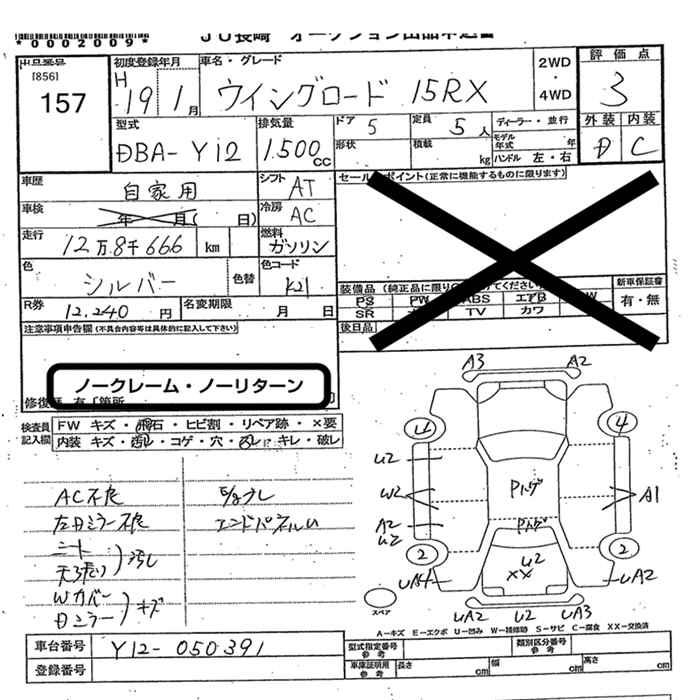 *0002009*
JU長崎 オークション出品申込書
出品番号
[856]
157
初度登録年月
H 19 1月
車名・グレード
ウイングロード 15RX
2WD・4WD
評価点
3
外装 内装
D C
型式
DBA-Y12
排気量
1.500cc
ドア 5
形状
定員 5人
積載 kg
ディーラー・並行
モデル年式 年
ハンドル 左・右
車歴
自家用
シフト AT
車検
年 月( 日)
冷房 AC
走行
12万8千666 km
燃料
ガソリン
色
シルバー
色替
色コード
K21
R券
12,240円
名変期限 月 日
セールスポイント(正常に機能するものに限ります)
新車保証書
有・無
PS PW ABS エアB
SR TV カワ
後日品
注意事項申告欄(不具合内容等は具体的に記入して下さい)
ノークレーム・ノーリターン
修復歴 有「箇所
検査員記入欄
FW キズ・飛石・ヒビ割・リペア跡・×要
内装 キズ・汚れ・コゲ・穴・ キレ・破レ
AC不良
左Dミラー不良
シート
天張り
汚れ
Wカバー
Dミラー
キズ
エンドパネルU
A3 A2
4
U2
W2
A2
U2
2
Pトゲ
Pトゲ
A1
2
U2
XX
UA2
UA2 U2 UA3
スペア
A-キズ E-エクボ U-凹み W-補修跡 S-サビ C-腐食 XX-交換済
車台番号
Y12-050391
登録番号
型式指定番号
参考
類別区分番号
参考
車庫証明用
参考
長さ cm
幅 cm
高さ cm